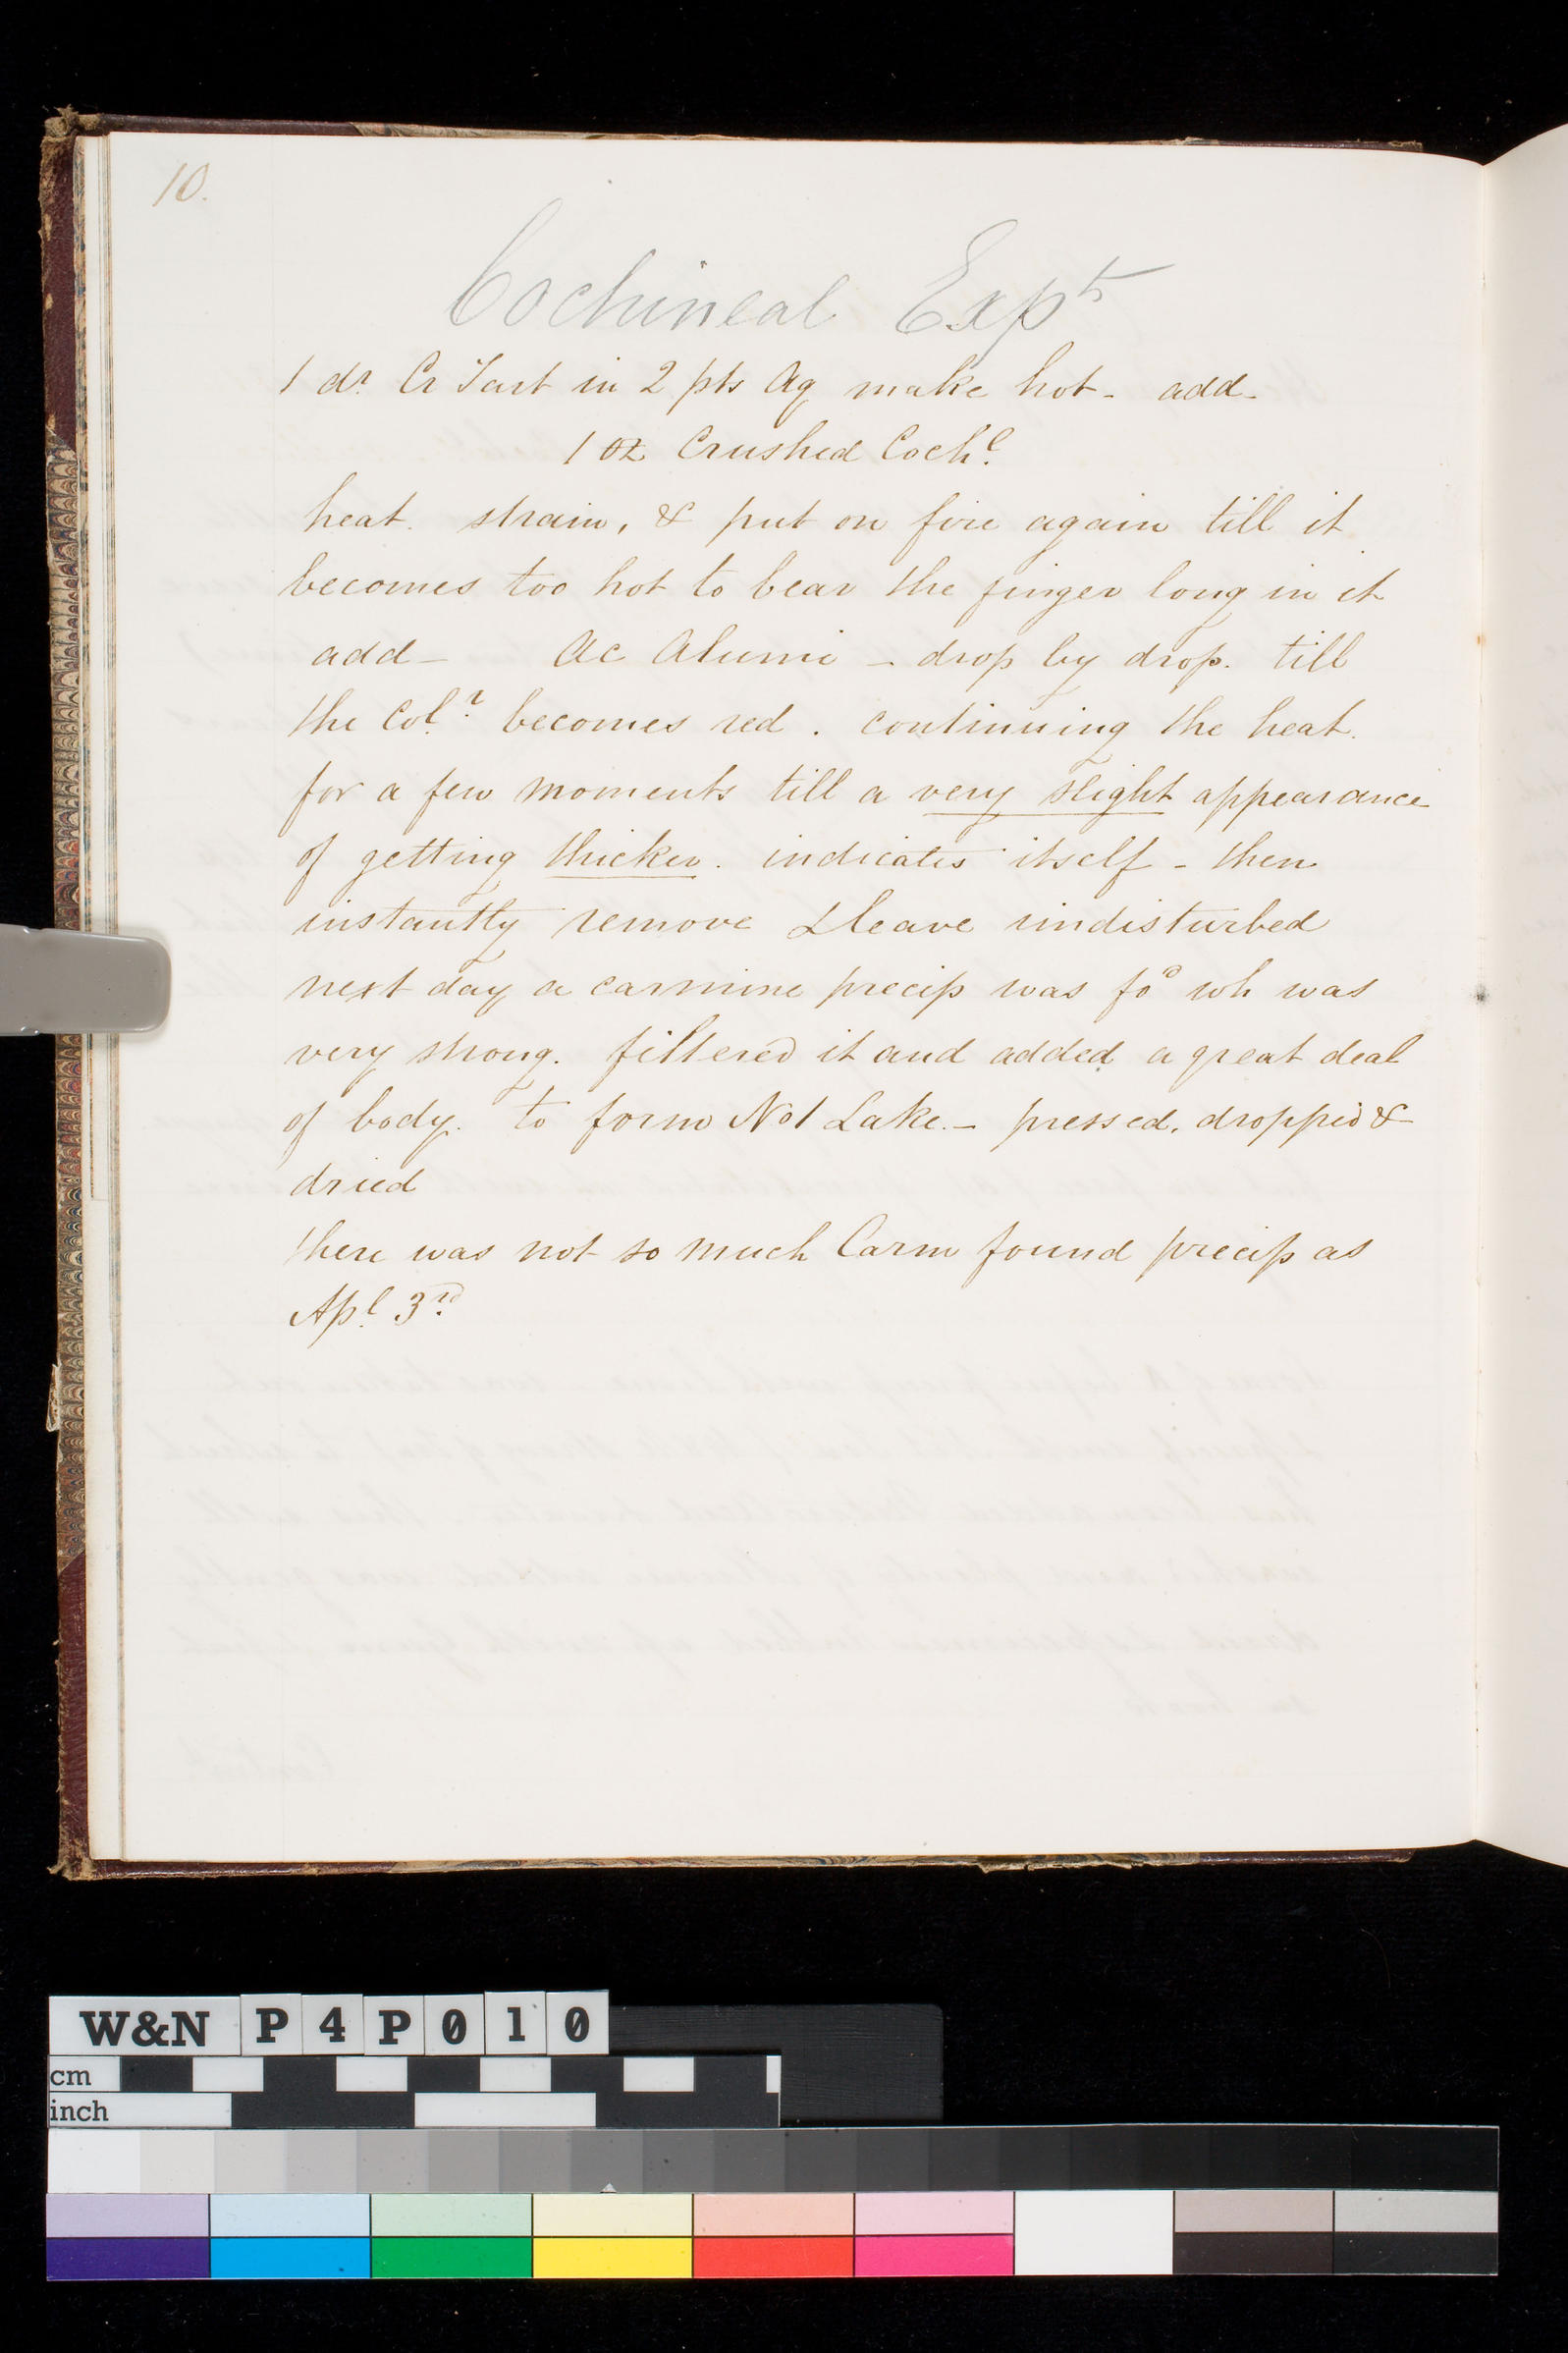 10.
Cochineal Expts
1 dr. Cr Tart in 2 pts Aq make hot - add -
1 oz Crushed Cochl.
heat. strain, & put on fire again till it
becomes too hot to bear the finger long in it
add - Ac Alumi - drop by drop. till
the Colr. becomes red. continuing the heat.
for a few moments till a very slight appearance
of getting thicker. indicates itself - then
instantly remove & leave undisturbed
next day a carmine precip was fd wh was
very strong. filtered it and added a great deal
of body. to form No1 Lake. - pressed, dropped &
dried
there was not so much Carm found precip as
Apl. 3rd.
W&N P4P010
cm
inch